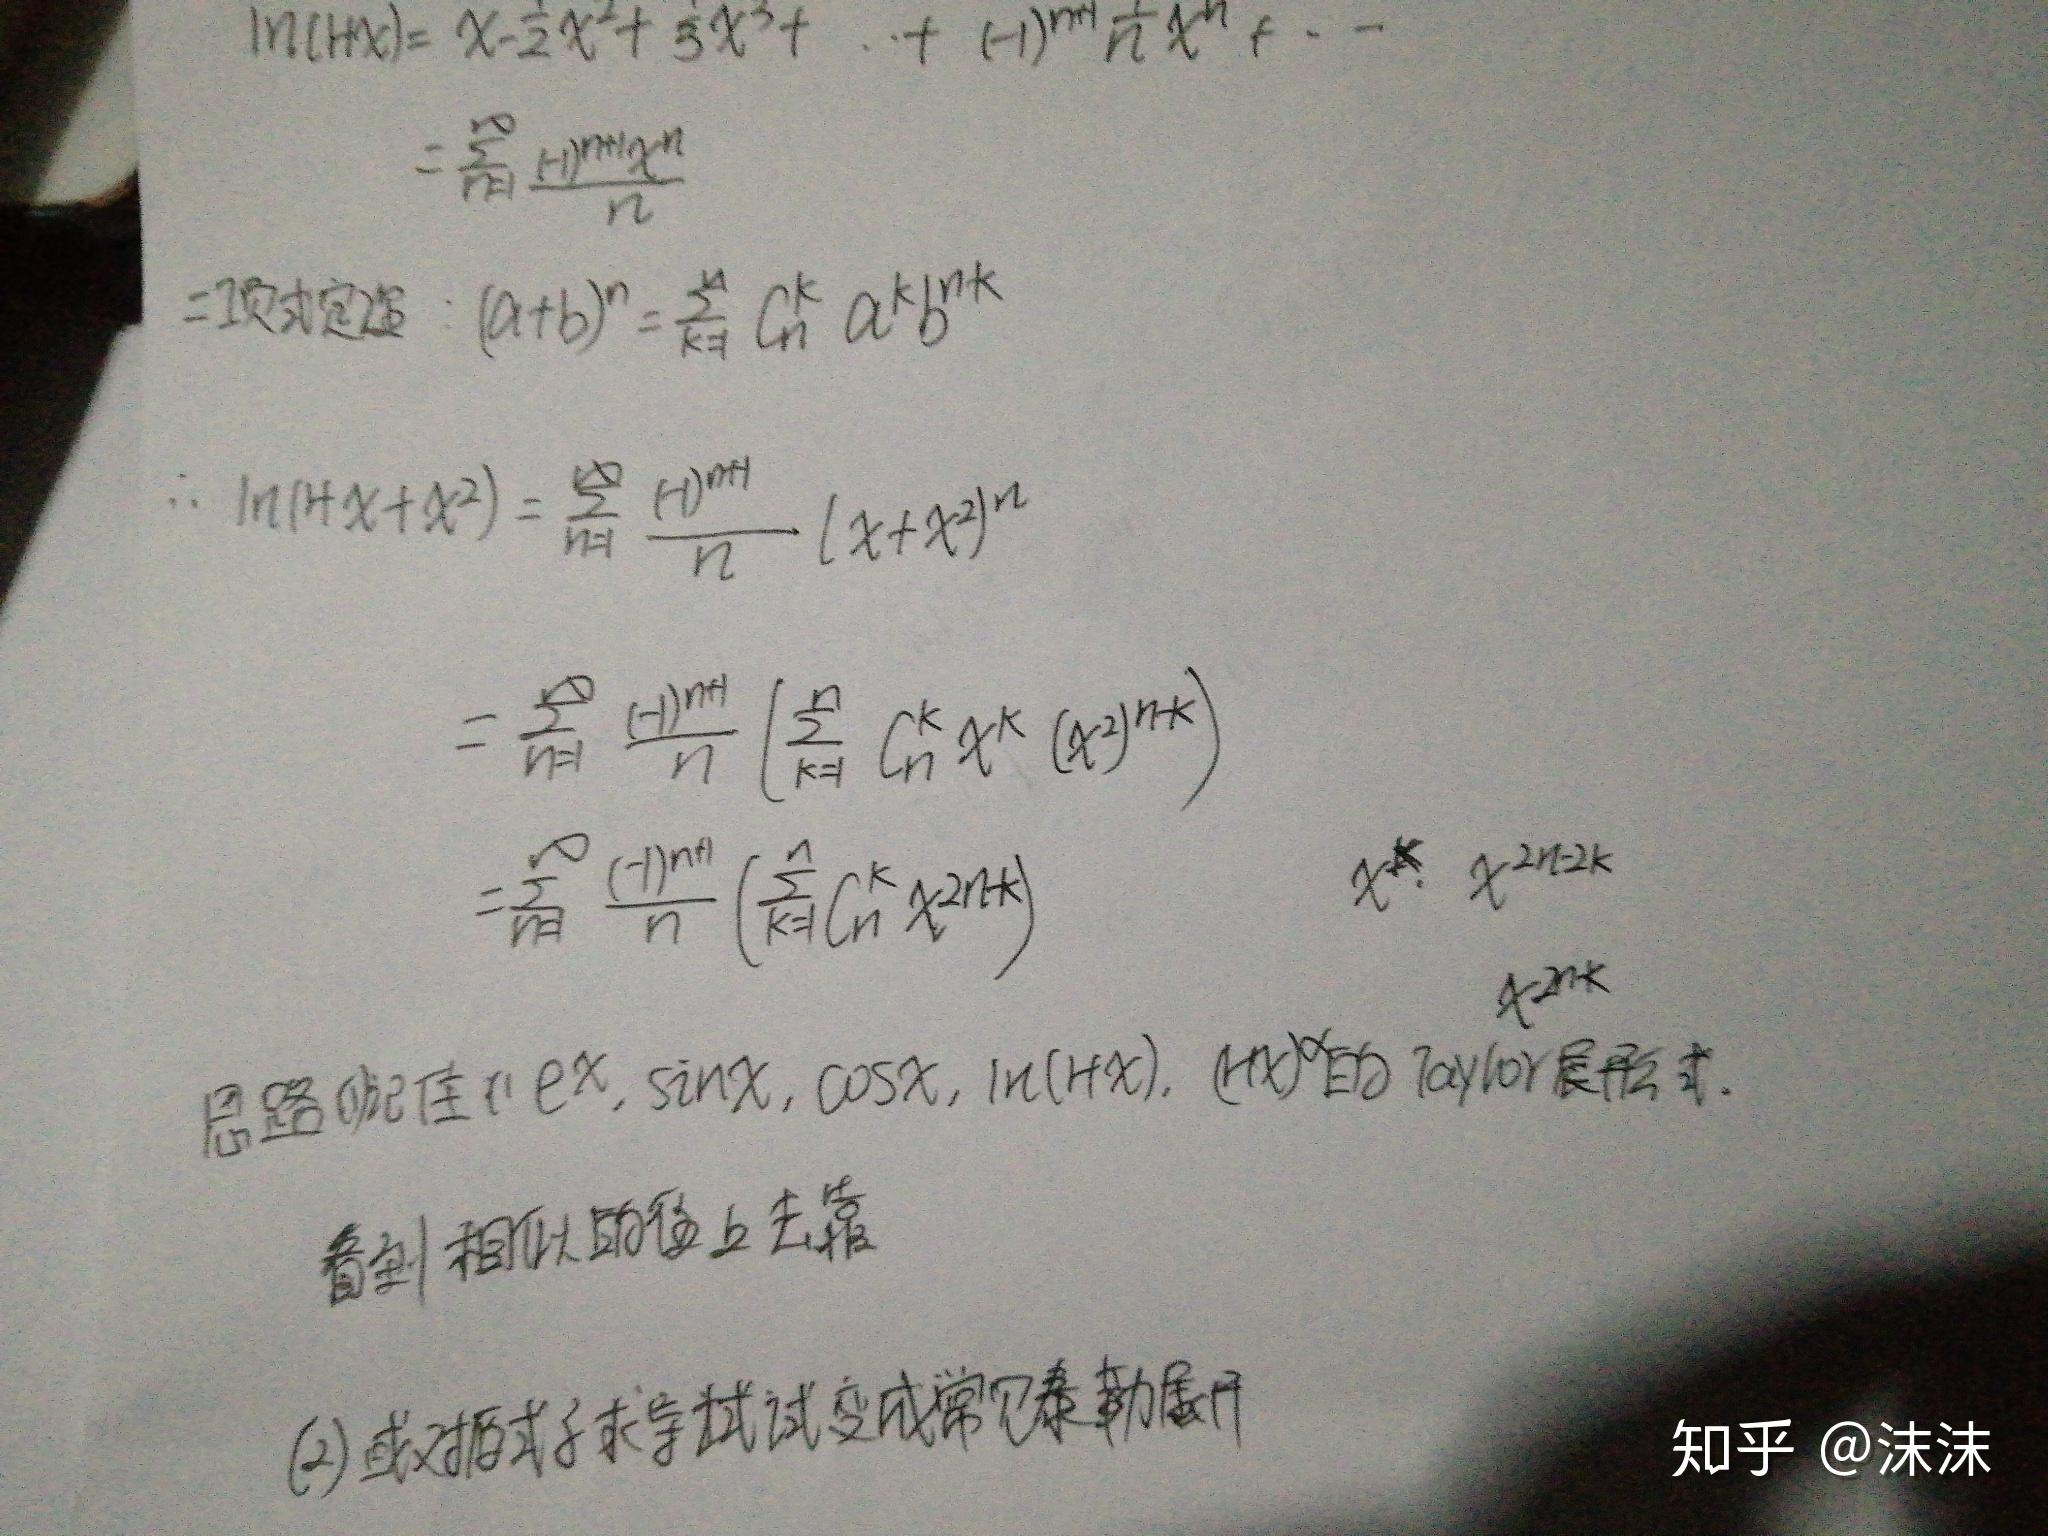 ln(1+x)= x-½x²+⅓x³+ ··+ (-1)ⁿ⁺¹ 1/n xⁿ + ···
= ∑_{n=1}^{∞} (-1)^{n+1}x^n / n
二项式定理: (a+b)^n = ∑_{k=1}^{n} C_n^k a^k b^{n-k}
∴ ln(1+x+x²) = ∑_{n=1}^{∞} (-1)^{n+1} / n (x+x²)^n
= ∑_{n=1}^{∞} (-1)^{n+1} / n (∑_{k=1}^{n} C_n^k x^k (x²)^{n-k})
= ∑_{n=1}^{∞} (-1)^{n+1} / n (∑_{k=1}^{n} C_n^k x^{2n-k}) x^k· x^{2n-2k}
x^{2n-k}
思路(1)记住 e^x, sinx, cosx, ln(1+x), (1+x)^α的 Taylor展开式.
看到相似的往上去靠
(2)或对原式子求导试试变成常见泰勒展开
知乎 @沫沫